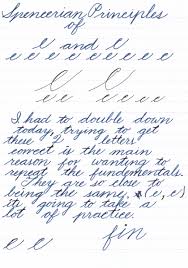 Spencerian Principles
of
e and e
e e e e e e e e e
e e
e e e e e e
I had to double down
today, trying to get
these 2 letters
correct is the main
reason for wanting to
repeat the fundamentals.
They are so close to
being the same, (e, c)
its going to take a
lot of practice.
e e fin